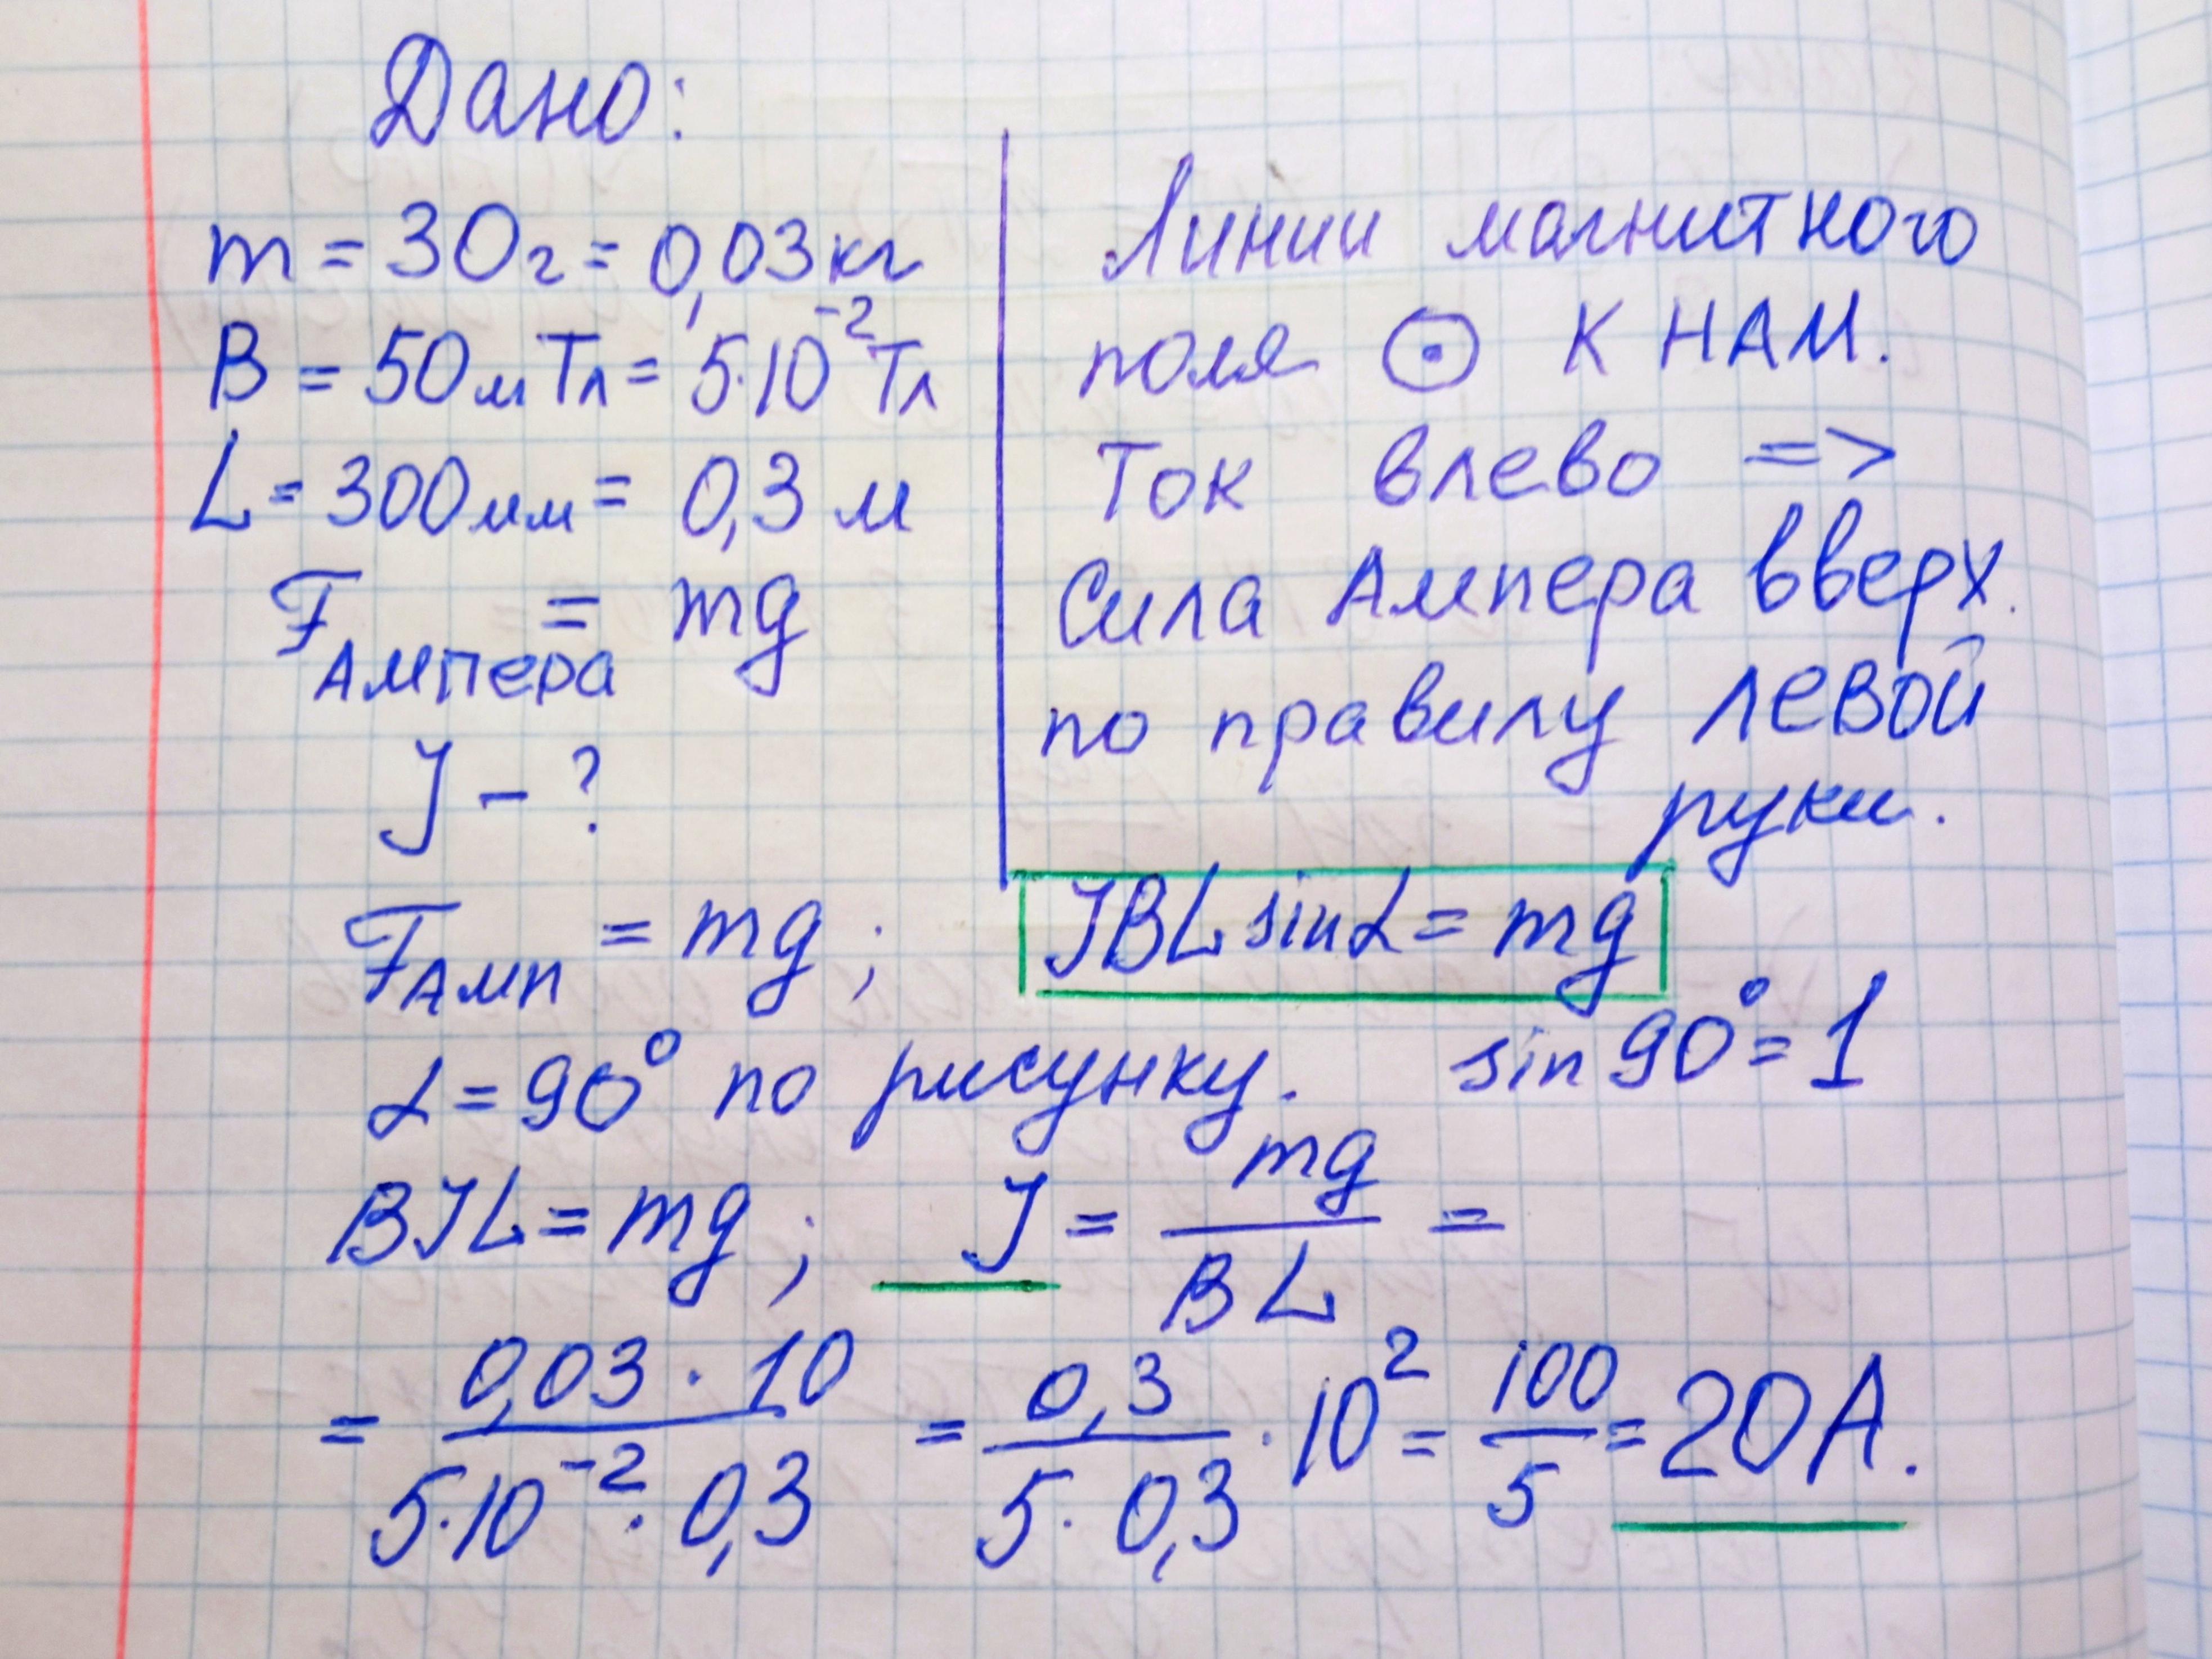 Дано:
m = 30г = 0,03кг
B = 50мТл = 5·10⁻²Тл
L = 300мм = 0,3м
F Ампера = mg
J - ?
Линии магнитного
поля ⊙ К НАМ.
Ток влево =>
Сила Ампера вверх.
по правилу ЛЕВОЙ
руки.
F Амп = mg ; JBL sinα = mg
α = 90° по рисунку. sin 90° = 1
BJL = mg ; J = mg / BL =
= 0,03 · 10 / 5·10⁻² · 0,3 = 0,3 / 5 · 0,3 · 10² = 100 / 5 = 20А.